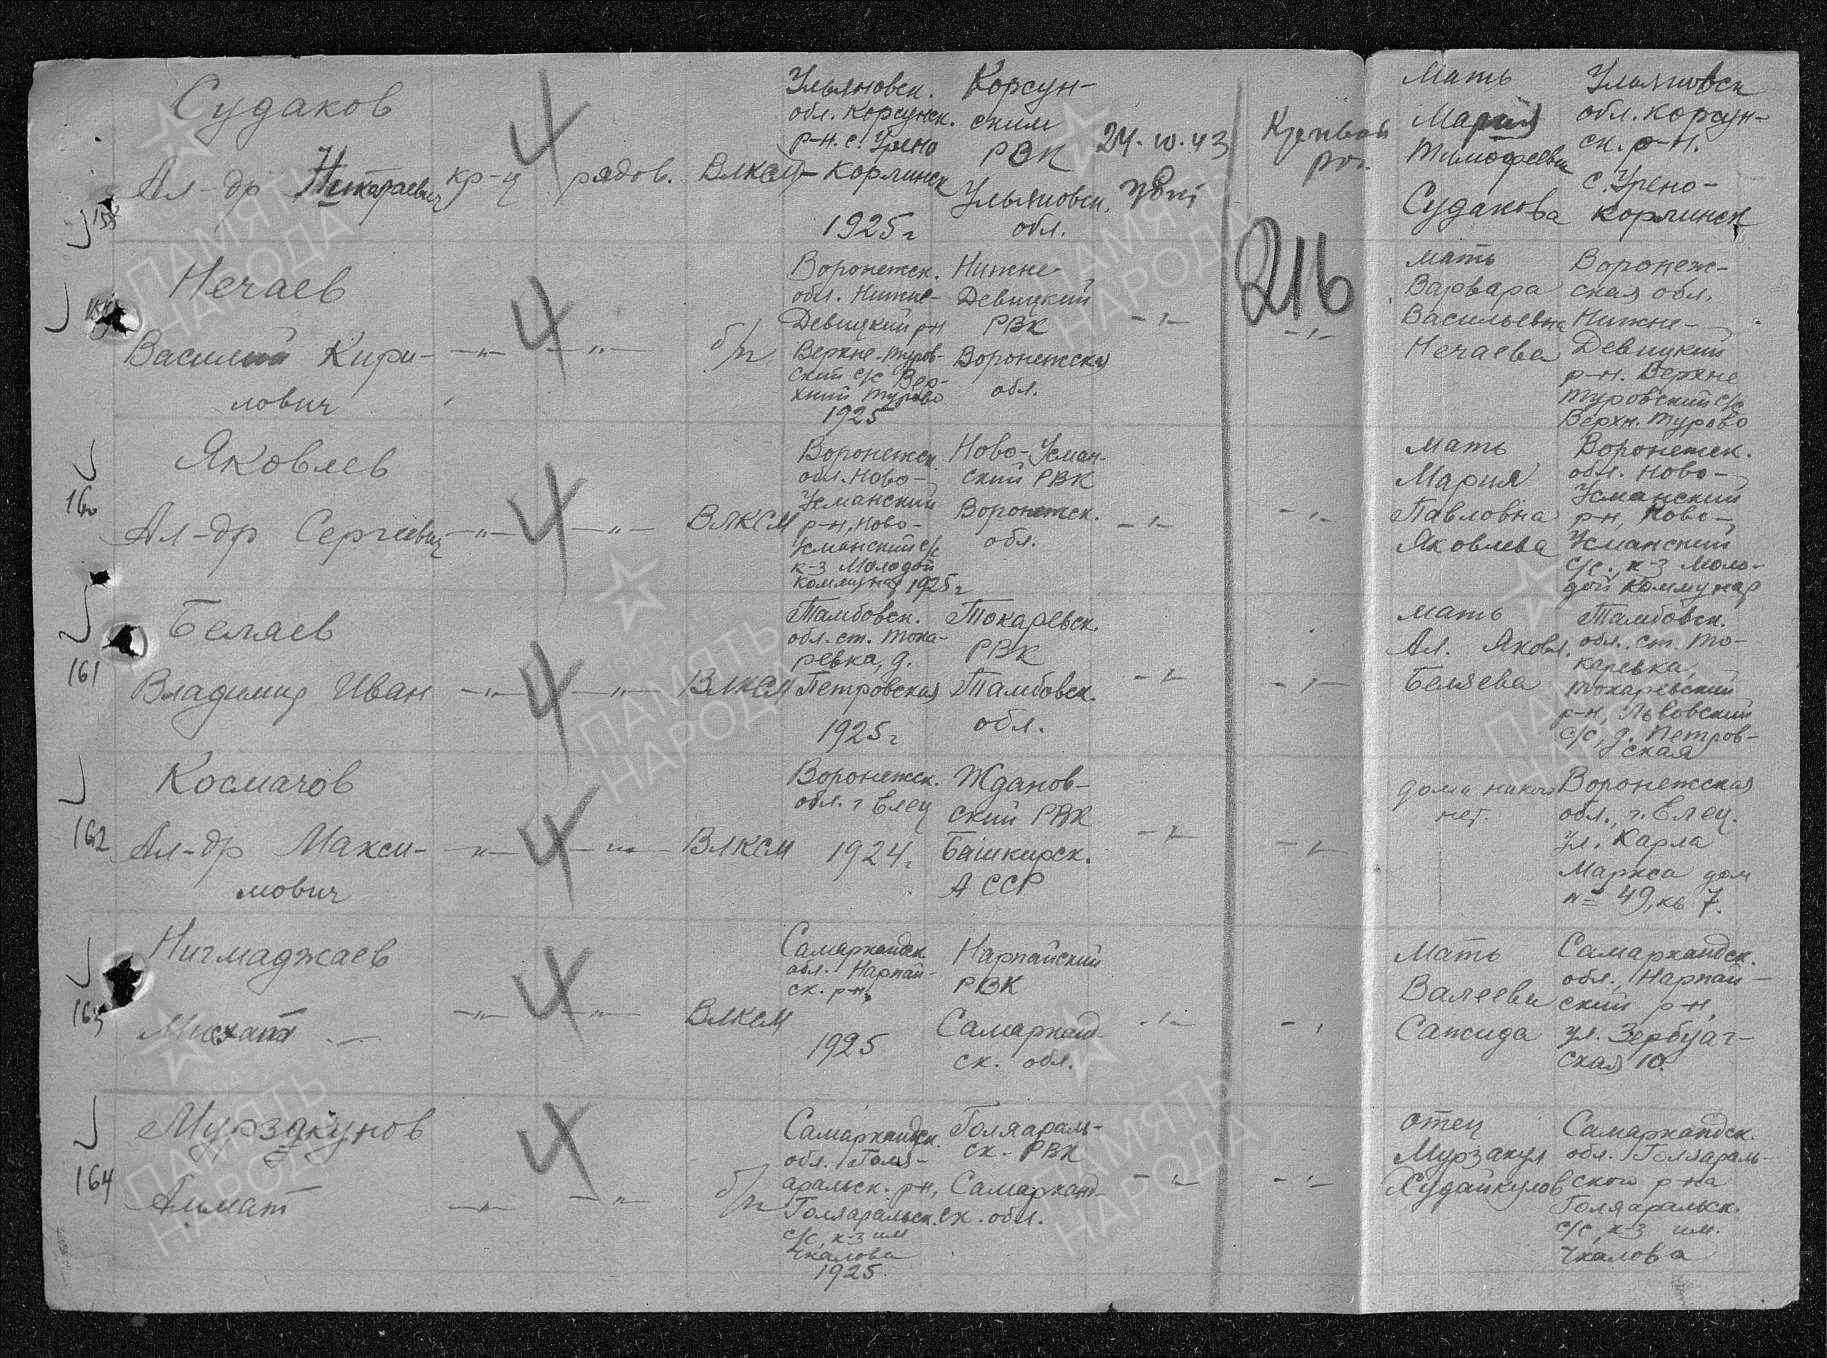 Судаков
Ал-др Никтраевич
кр-ц
4
рядов.
ВЛКСМ
Ульяновск.
обл. Корсунск.
р-н. с. Урено
Корлинск
1925 г
Корсун-
ским
РВК
Ульяновск.
обл.
24.10.43
Кривой
Рог.
Мать
Мария
Тимофеевн
Судакова
Ульяновск
обл. Корсун-
ск. р-н.
с. Урено-
Корлинск
216
Нечаев
Василий Кири-
лович
-"-
4
-"-
б/п
Воронежск.
обл. Нижне-
Девицкий рн
Верхне-Туров-
ский с/с Вер-
хний Турово
1925
Нижне-
Девицкий
РВК
Воронежска
обл.
-"-
-"-
мать
Варвара
Васильевна
Нечаева
Воронеж-
ская обл.
Нижне-
Девицкий
р-н. Верхне
Туровский с/с
Верхн. Турово
160
Яковлев
Ал-др Сергеевич
-"-
4
-"-
ВЛКСМ
Воронежск.
обл. Ново-
Усманский
р-н, Ново-
Усманский с/с
к-з Молодой
коммунар 1925 г
Ново-Усман-
ский РВК
Воронежск.
обл.
-"-
-"-
мать
Мария
Павловна
Яковлева
Воронежск.
обл. Ново-
Усманский
р-н, Ново-
Усманский
с/с, к-з Моло-
дой Коммунар
161
Беляев
Владимир Иван
-"-
4
-"-
ВЛКСМ
Тамбовск.
обл. ст. Тока-
ревка, д.
Петровская
1925 г
Токаревск.
РВК
Тамбовск.
обл.
-"-
-"-
мать
Ал. Яковл.
Беляева
Тамбовск.
обл., ст. То-
каревка,
Токаревский
р-н, Львовский
с/с, д. Петров-
ская
162
Космачов
Ал-др Макси-
мович
-"-
4
-"-
ВЛКСМ
Воронежск.
обл. г Елец
1924 г
Жданов-
ский РВК
Башкирск.
АССР
-"-
-"-
дома никого
нет.
Воронежская
обл., г. Елец.
ул. Карла
Маркса дом
№ 49, кв 7.
163
Нигмаджаев
-"-
4
-"-
ВЛКСМ
Самаркандск.
обл. Нарпай-
ск. р-н,
1925
Нарпайский
РВК
Самарканд-
ск. обл.
-"-
-"-
Мать
Валеева
Сажида
Самаркандск.
обл., Нарпай-
ский р-н,
ская 10.
164
Мурзакунов
Алмат
-"-
4
-"-
б/п
Самаркандск.
обл. Голя-
аральск. рн,
Голяаральск.
с/с, к-з им
Чкалова
1925.
Голяараль-
ск. РВК
Самарканд-
ск. обл.
-"-
-"-
отец
Мурзакул
Худайкулов
Самаркандск.
обл. Голяараль-
ского р-на
Голяаральск.
с/с, к-з им.
Чкалова
ПАМЯТЬ
НАРОДА
ПАМЯТЬ
НАРОДА
ПАМЯТЬ
НАРОДА
ПАМЯТЬ
НАРОДА
ПАМЯТЬ
НАРОДА
ПАМЯТЬ
НАРОДА